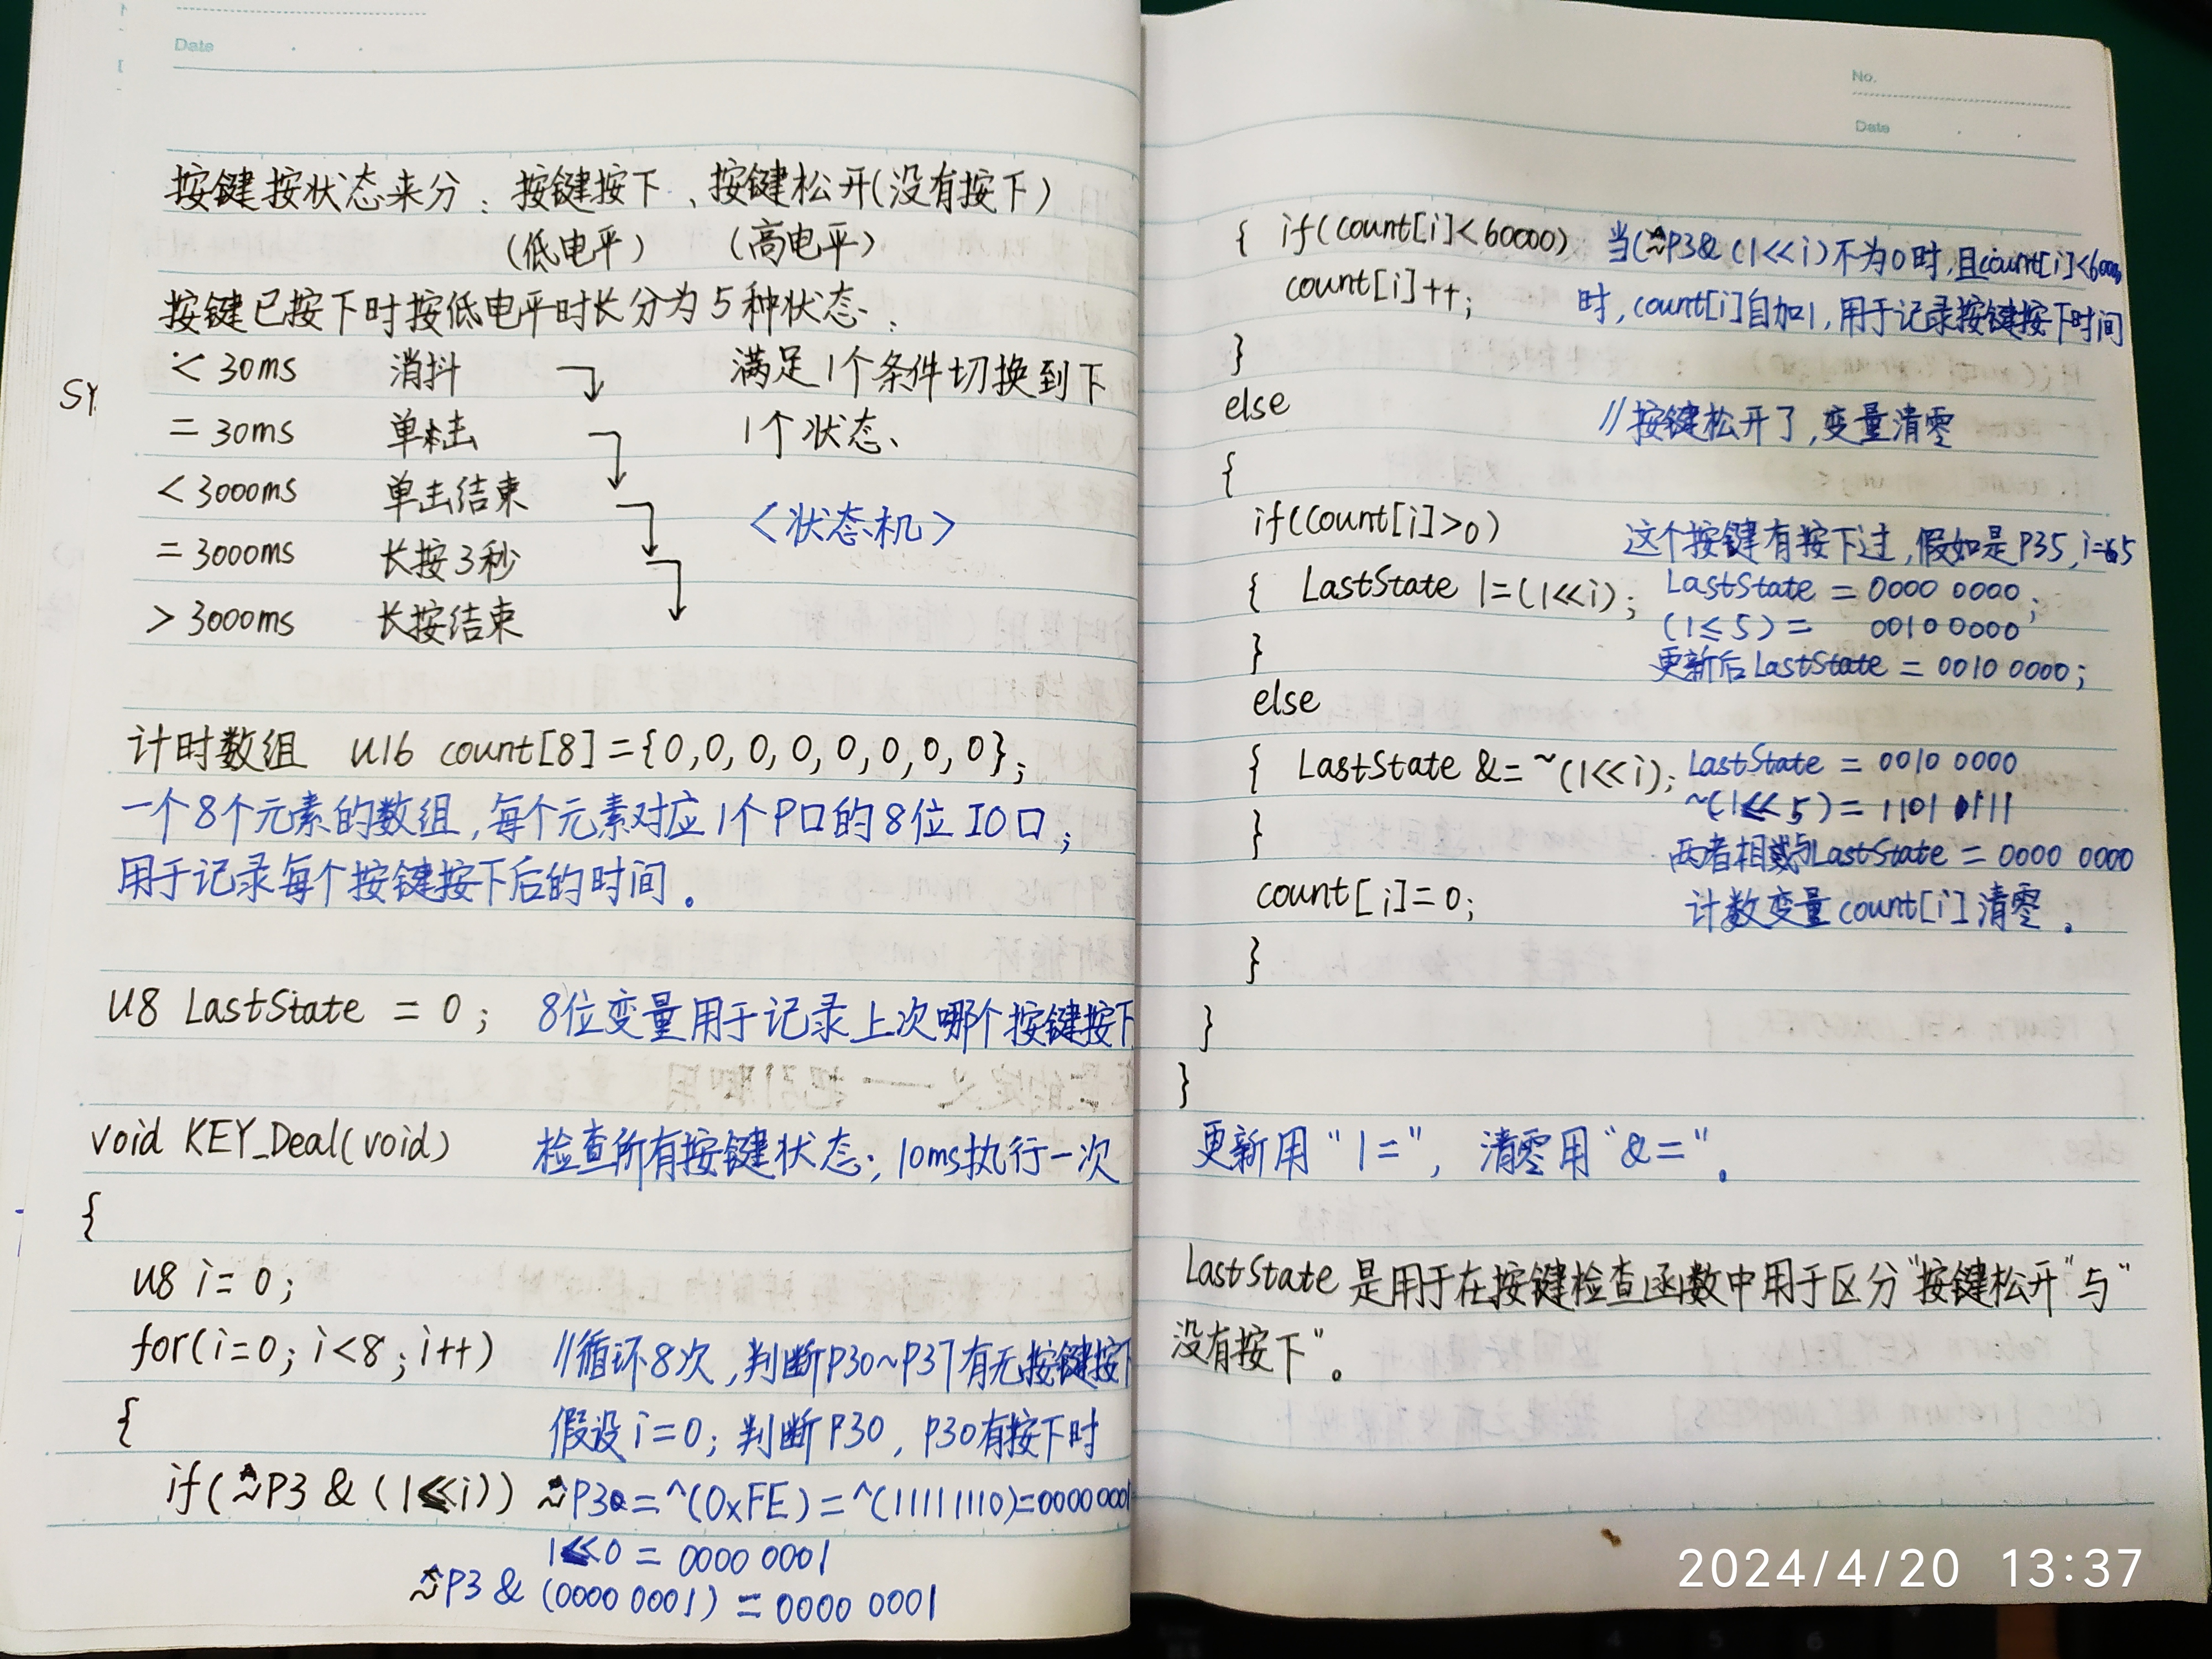 Date
按键按状态来分：按键按下、按键松开(没有按下)
(低电平) (高电平)
按键已按下时按低电平时长分为5种状态：
< 30ms 消抖 满足1个条件切换到下
= 30ms 单击 1个状态、
< 3000ms 单击结束 <状态机>
= 3000ms 长按3秒
> 3000ms 长按结束
SY
计时数组 u16 count[8]={0,0,0,0,0,0,0,0};
一个8个元素的数组,每个元素对应1个P口的8位IO口;
用于记录每个按键按下后的时间。
u8 LastState = 0; 8位变量用于记录上次哪个按键按下
void KEY_Deal(void) 检查所有按键状态;10ms执行一次
{
u8 i=0;
for(i=0;i<8;i++) //循环8次,判断P30~P37有无按键按下
{ 假设i=0;判断P30,P30有按下时
if(~P3 & (1<<i)) ~P3=^(0xFE)=^(11111110)=00000001
1<<0=0000 0001
~P3 & (0000 0001) = 0000 0001
No.
Date
{ if(count[i]<60000) 当(~P3&(1<<i)不为0时,且count[i]<60000
count[i]++; 时,count[i]自加1,用于记录按键按下时间
}
else //按键松开了,变量清零
{
if(count[i]>0) 这个按键有按下过,假如是P35,i=5
{ LastState |=(1<<i); LastState = 0000 0000;
(1≤5)= 0010 0000
} 更新后LastState = 0010 0000;
else
{ LastState &= ~(1<<i); LastState = 0010 0000
~(1<<5)=1101 1111
} 两者相与LastState = 0000 0000
count[i]=0; 计数变量count[i]清零。
}
}
}
更新用"|=",清零用"&="。
LastState是用于在按键检查函数中用于区分"按键松开"与"
没有按下"。
2024/4/20 13:37